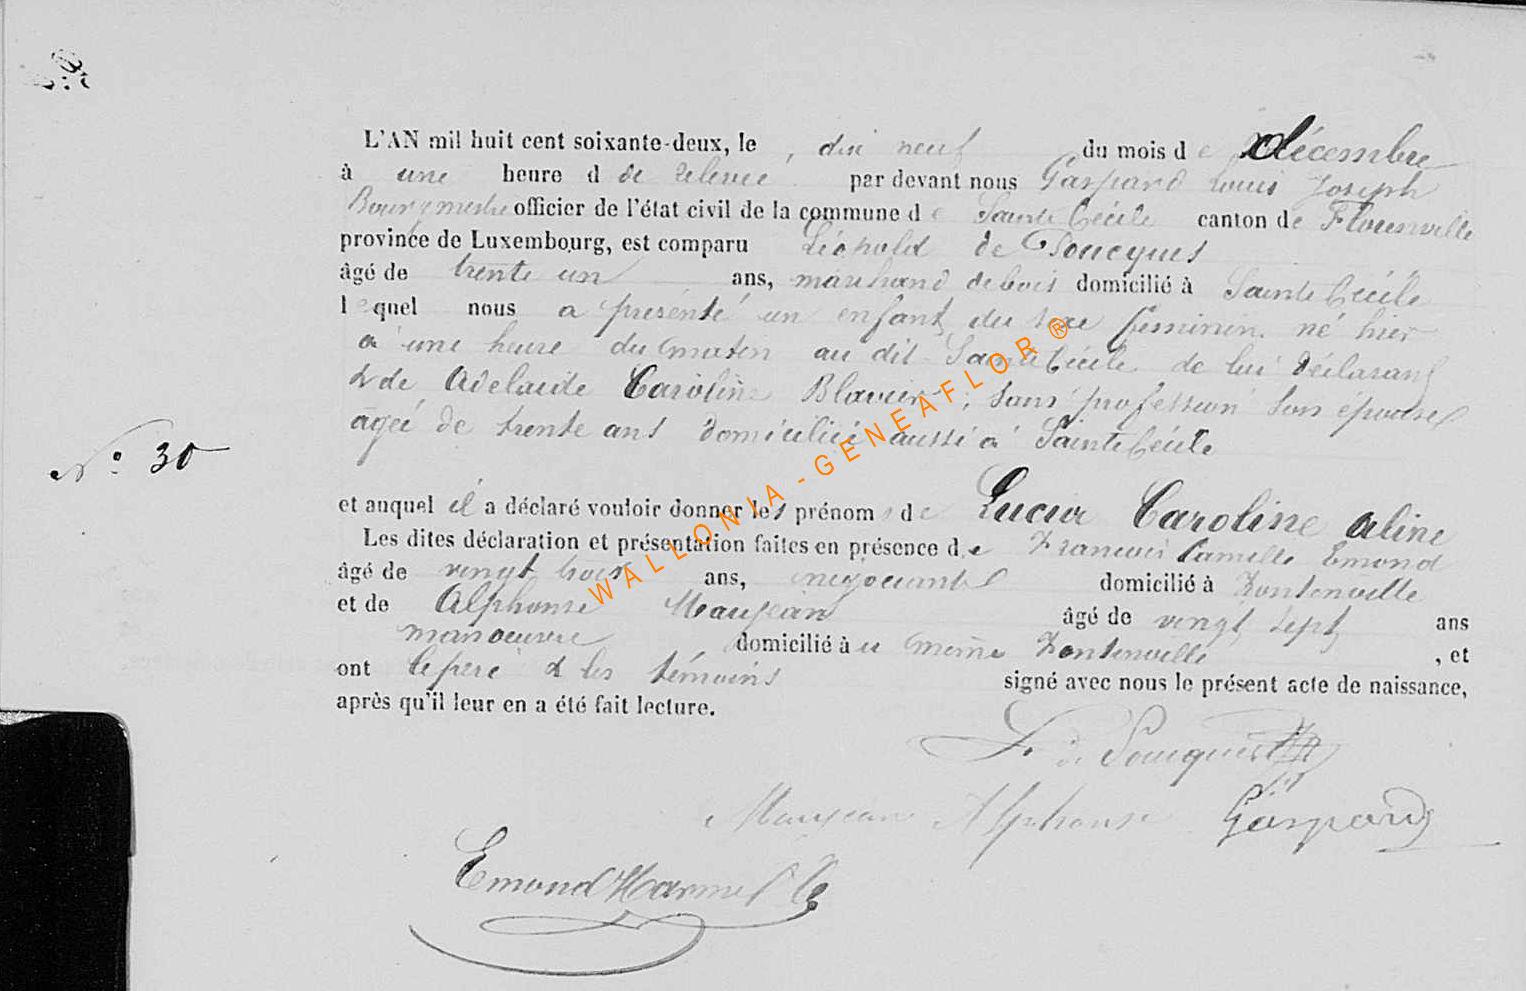 L'AN mil huit cent soixante-deux, le dix neuf du mois de Décembre
à une heure d de relevée par devant nous Gaspard Louis Joseph
Bourgmestre officier de l'état civil de la commune de Sainte Cécile canton de Florenville
province de Luxembourg, est comparu Léopold de
âgé de trente un ans, marchand de bois domicilié à Sainte Cécile
lequel nous a présenté un enfant du sexe féminin né hier
à une heure du matin au dit Sainte Cécile de lui déclarant
& de Adelaïde Caroline Blavier, sans profession son épouse
agée de trente ans domiciliée aussi à Sainte Cécile
N° 30
et auquel il a déclaré vouloir donner les prénoms de Lucie Caroline Aline
Les dites déclaration et présentation faites en présence de Francois Camille Emond
âgé de vingt trois ans, négociant domicilié à Fontenoille
et de Alphonse Maujean âgé de vingt sept ans
manoeuvre domicilié à même Fontenoille, et
ont le père & les témoins signé avec nous le présent acte de naissance,
après qu'il leur en a été fait lecture.
Maujean Alphonse Gaspard
Emond Harmel
WALLONIA - GENEAFLOR ®